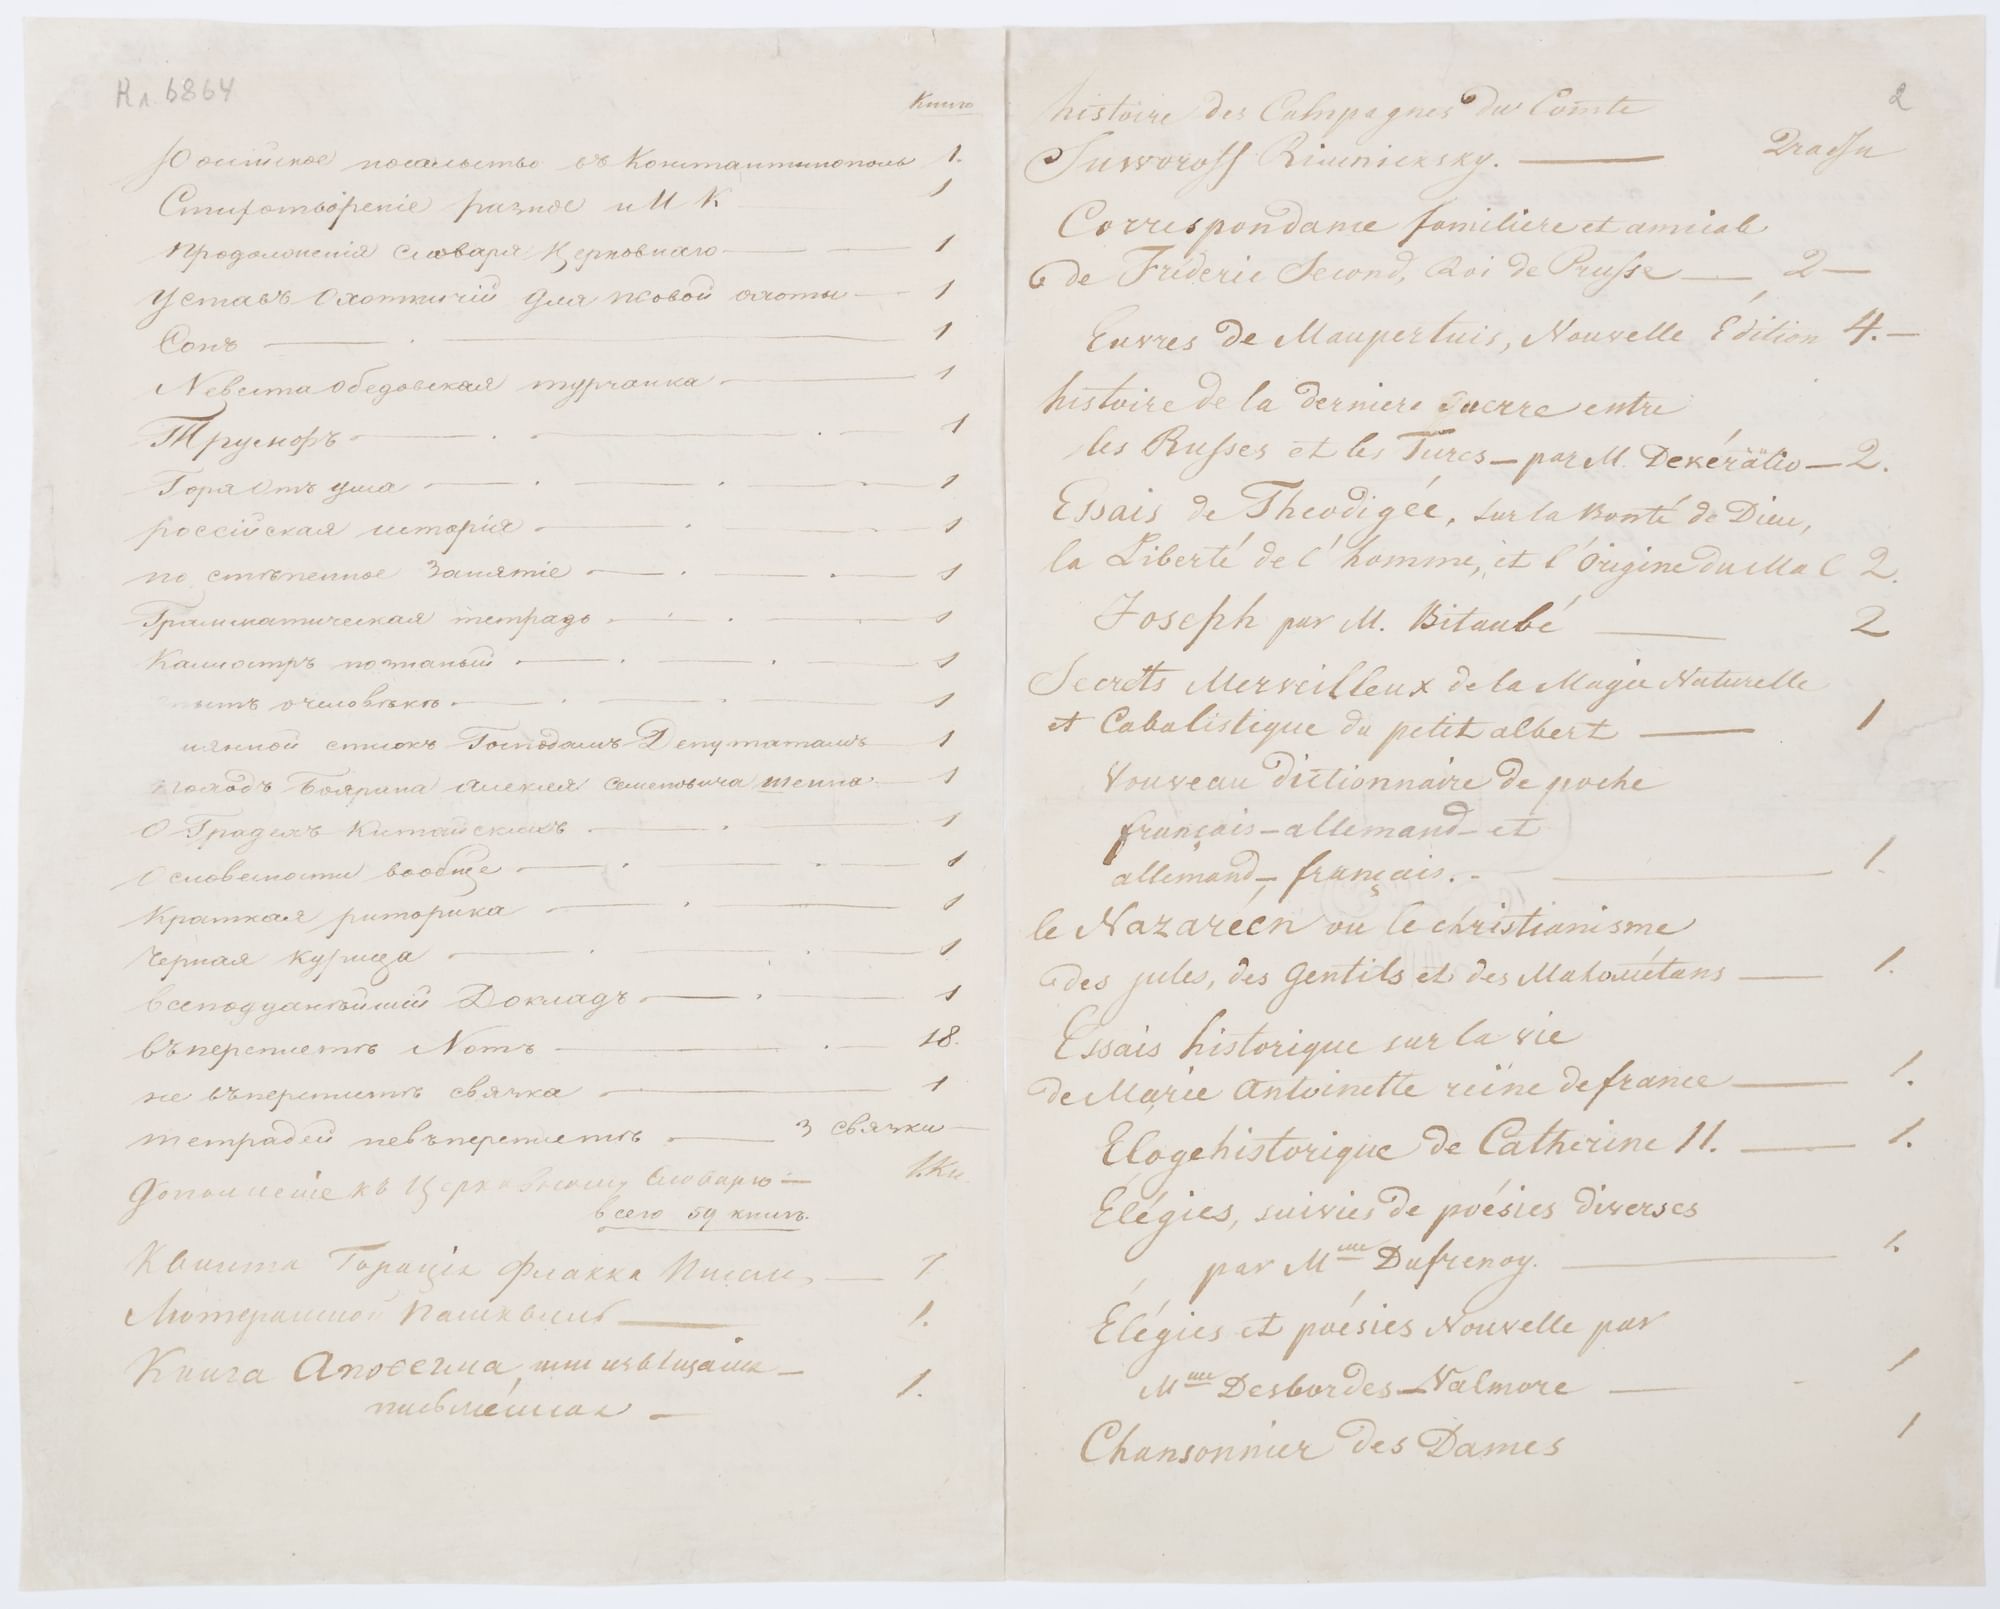 Rл 6864
Книгъ
Россійское посольство въ Константинополь 1.
Стихотворѣніе разное и М К 1
продолженія словаря Церковнаго 1
Уставъ Охотничій для псовой охоты 1
Сонъ 1
Невеста обедовская турчанка 1
Трумфъ 1
Горя отъ ума 1
россійская исторія 1
по стѣпенное Занятіе 1
Грамматическая тетрадь 1
Калиостръ познаный 1
опытъ о человѣкѣ 1
списокъ Господамъ Депутатамъ 1
походъ Боярина Алексея Семеновича Шеина 1
О Градехъ Китайскихъ 1
О словесности вообще 1
Краткая риторика 1
Черная курица 1
всеподданнѣйшій Докладъ 1
въ переплетѣ Нотъ 18.
не въ переплетѣ связка 1
тетрадей не въ переплетѣ 3 связки
дополненіе къ Церковному Словарю 1.Кн.
всего 59 книгъ.
Квинта Горація Флакка 7
Лютеранской Пашквиль 1.
Книга
1.
2
histoire des Campagnes du Comte
Suworoff Rimniksky.
Correspondance familiere et amicale
de Fréderic Second, Roi de Prusse 2
Euvres de Maupertuis, Nouvelle Édition 4.
histoire de la derniere guerre entre
les Russes et les Turcs par M. Dekéralio 2.
Essais de Theodigée, sur la Bonté de Dieu,
la Liberté de l'homme, et l'Origine du Mal 2.
Joseph par M. Bitaubé 2
Secrets Merveilleux de la Magie Naturelle
et Cabalistique du petit albert 1
Nouveau dictionnaire de poche
français - allemand - et
allemand - français. 1.
le Nazaréen ou le christianisme
des juifs, des Gentils et des Mahométans 1.
Essais historique sur la vie
de Marie Antoinette reine de france 1.
Eloge historique de Catherine II. 1.
Élégies, suivies de poésies diverses
par Mme Dufrenoy. 1.
Élégies et poésies Nouvelle par
Mme Desbordes-Valmore 1
Chansonnier des Dames 1